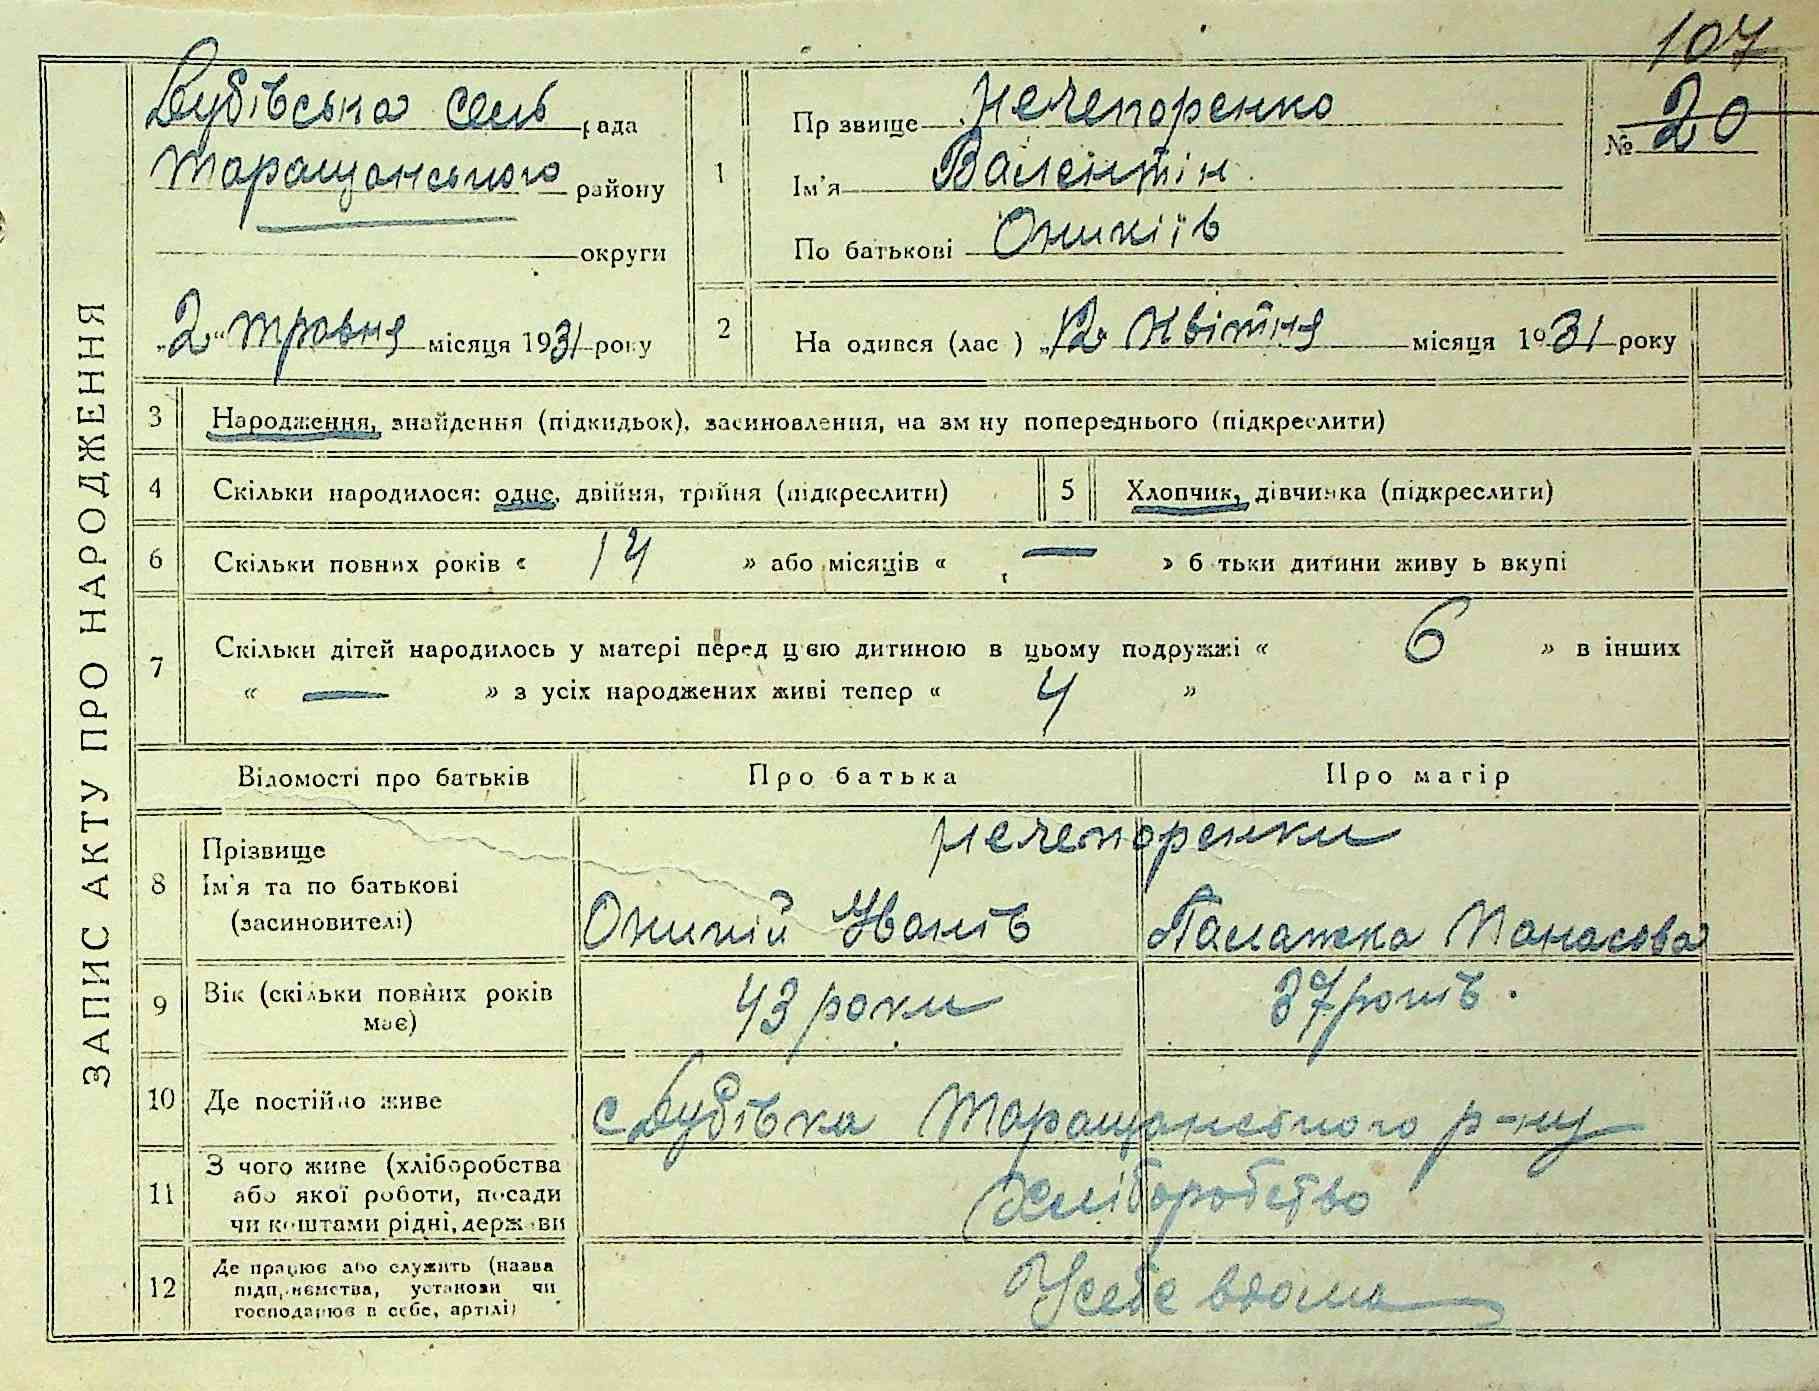 107
Дубівська сель рада
Таращанського району
округи
„2“ травня місяця 1931 року
1
Пр звище Нечепоренко
Ім'я Валентін
По батькові Оникіїв
№ 20
2
На одився (лас ) „12“ квітня місяця 1931 року
ЗАПИС АКТУ ПРО НАРОДЖЕННЯ
3 Народження, знайдення (підкидьок), засиновлення, на зм ну попереднього (підкреслити)
4 Скільки народилося: одне, двійня, трійня (підкреслити)
5 Хлопчик, дівчинка (підкреслити)
6 Скільки повних років « 14 » або місяців « — » б тьки дитини живу ь вкупі
7 Скільки дітей народилось у матері перед цією дитиною в цьому подружжі « 6 » в інших
« — » з усіх народжених живі тепер « 4 »
Відомості про батьків Про батька Про матір
8 Прізвище
Ім'я та по батькові
(засиновителі)
Нечепоренки
Оникій Іванів Палажка Панасова
9 Вік (скільки повних років
має)
43 роки 37 років.
10 Де постійно живе
с Дубівка Таращанського р-ну
11 З чого живе (хліборобства
або якої роботи, посади
чи коштами рідні, держ ви
Хліборобство
12 Де працює або служить (назва
підприємства, установи чи
господарює в себе, артілі)
У себе вдома